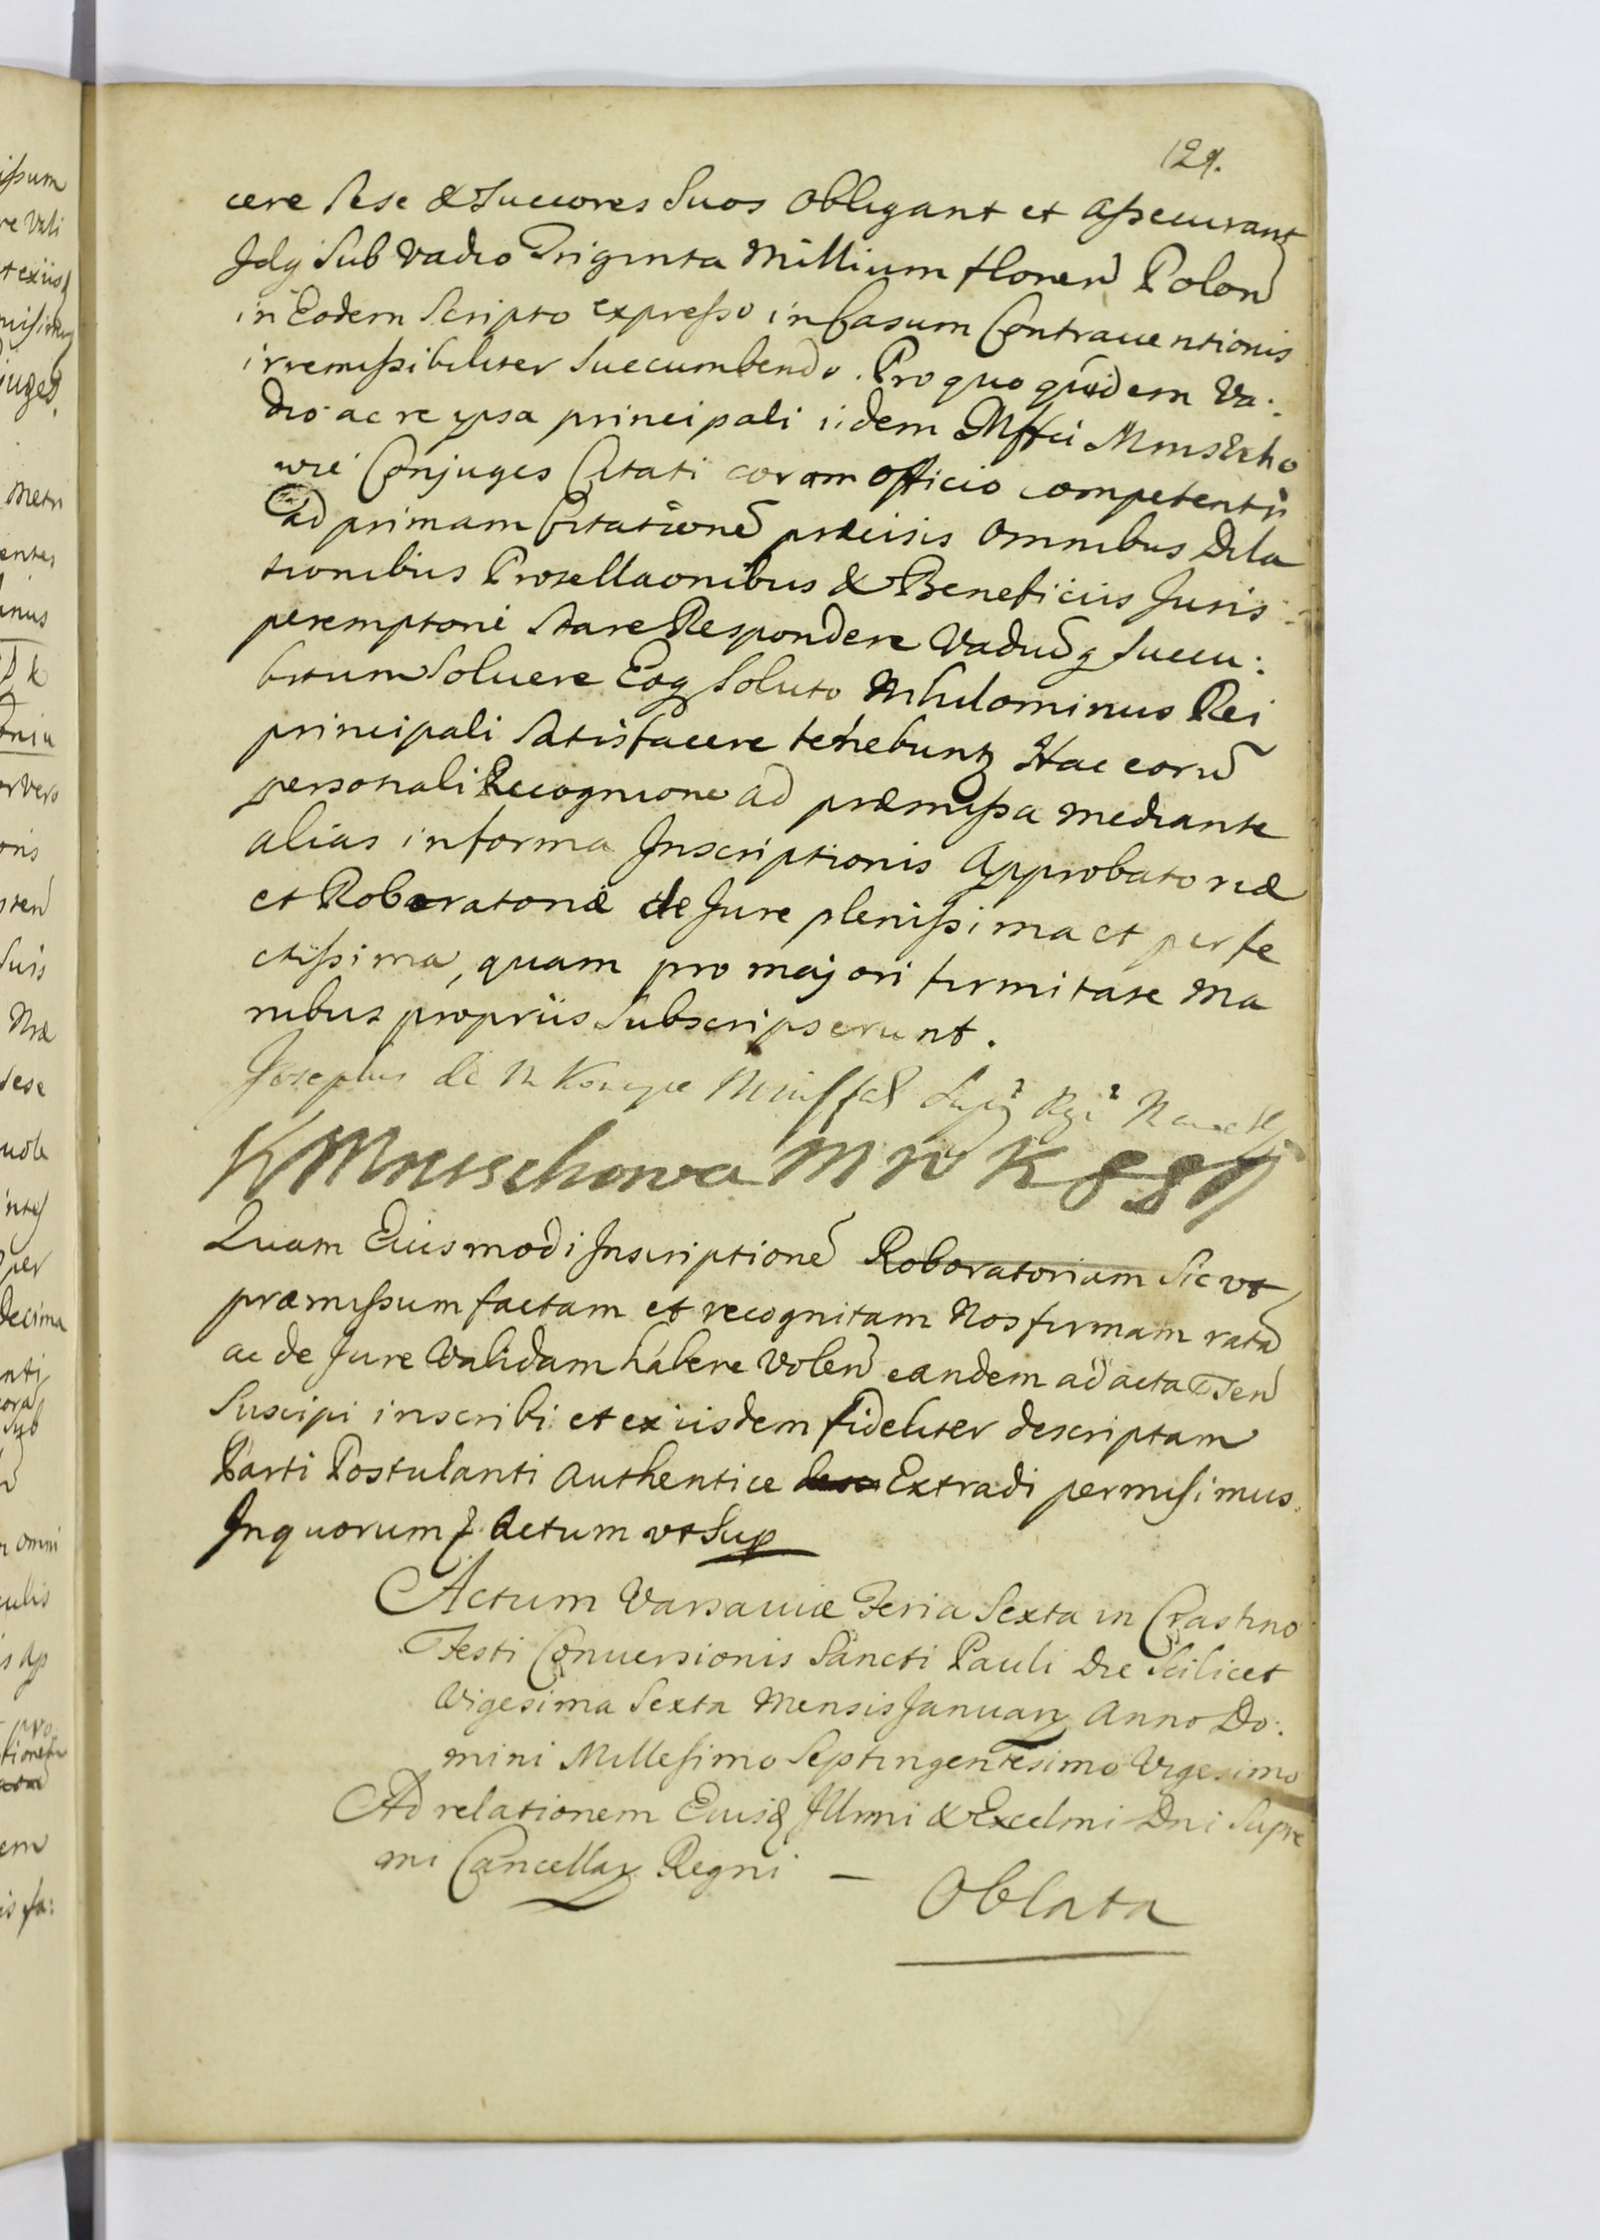 129.
cere sese & Succores Suos obligant et assecurant
Idq Sub vadio Triginta Millium floren Polon
in Eodem Scripto expresso in Casum Contrauentionis
irremissibiliter succumbendo. Pro quo quidem Va:
dio ac re ipsa principali iidem Mffci Mniszcho
wie Conjuges Citati coram officio competenti
ad primam Citatione præcisis omnibus Dila
tionibus & Beneficiis Juris
peremptorie stare Respondere Vadiu q succu:
bitum Soluere Eoq soluto Nihilominus Rei
principali Satisfacere tenebunt Hac eoru
personali Recognione ad præmissa mediante
alias in forma Inscriptionis Approbatoriæ
et Roboratoriæ de Jure plenissima et perfe
ctissima, quam pro majori firmitate Ma
nibus propriis Subscripserunt.
Josephus de M Konczyce Mniszek
K Mniszchowa M W K
Quam Eiusmodi Inscriptione Roboratoriam Sic ut
præmissum factam et recognitam Nos firmam rata
ac de Jure Validam habere Volen eandem ad acta
Suscipi inscribi et ex iisdem fideliter descriptam
Parti Postulanti Authentice Extradi permisimus.
In quorum Actum ut Sup
Actum Varsauiæ Feria Sexta in Crastino
Festi Conuersionis Sancti Pauli Die Scilicet
Vigesima Sexta Mensis Januarij Anno Do:
mini Millesimo Septingentesimo Vigesimo
Ad relationem Eiusd Illmi & Excelmi Dni Supre
mi Cancellarij Regni —
Oblata